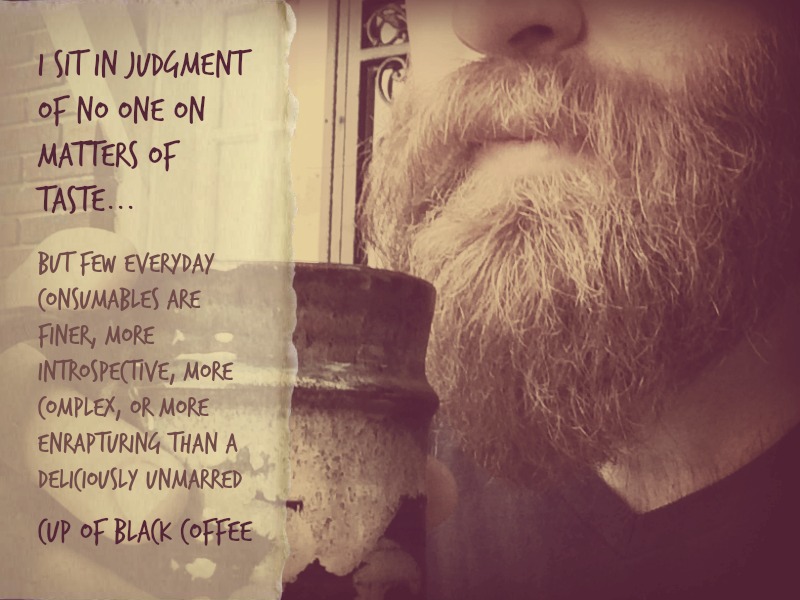 I SIT IN JUDGMENT
OF NO ONE ON
MATTERS OF
TASTE...
BUT FEW EVERYDAY
CONSUMABLES ARE
FINER, MORE
INTROSPECTIVE, MORE
COMPLEX, OR MORE
ENRAPTURING THAN A
DELICIOUSLY UNMARRED
CUP OF BLACK COFFEE